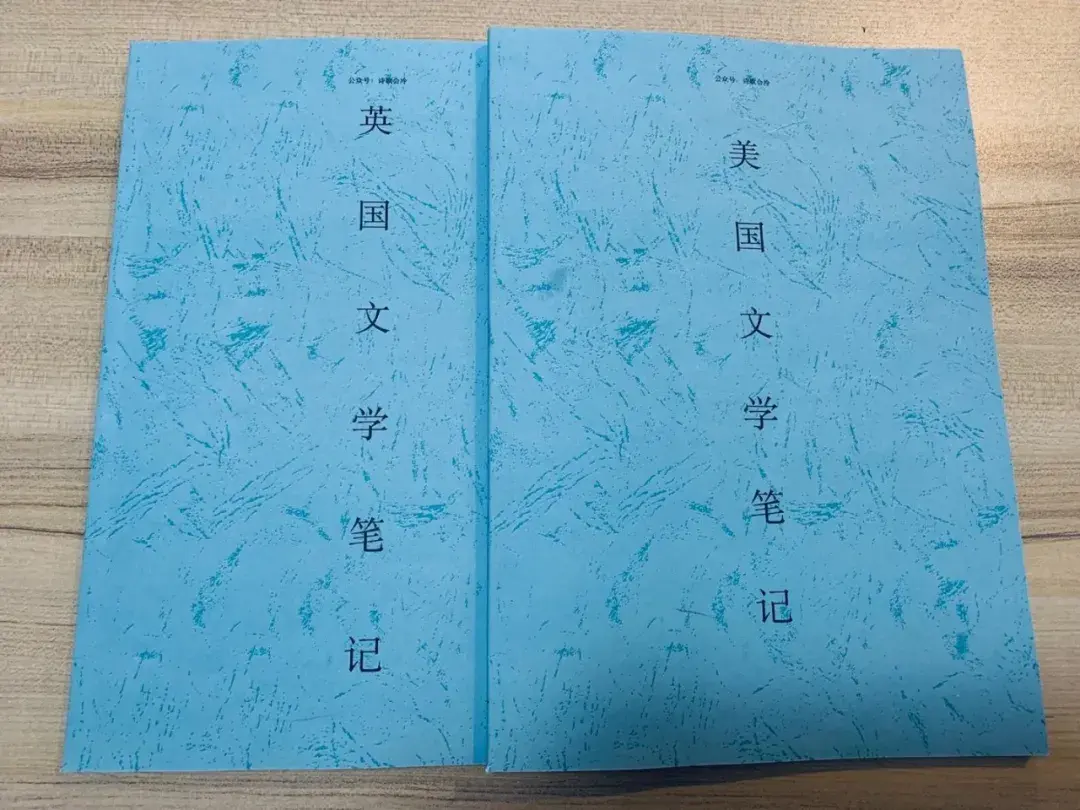 公众号：诗歌会玲
英国文学笔记
公众号：诗歌会玲
美国文学笔记